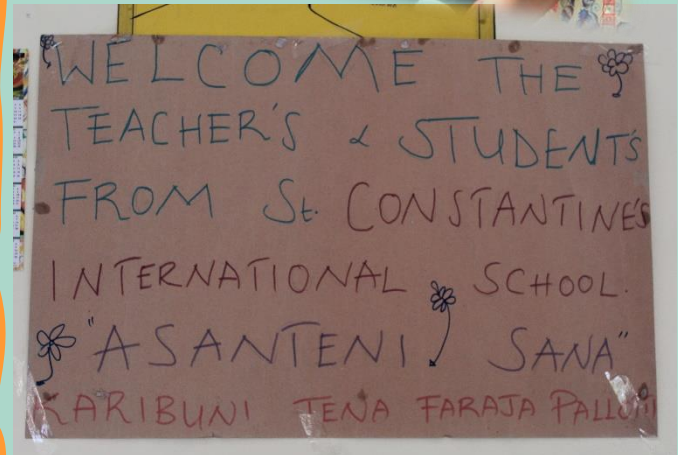 WELCOME THE
TEACHER'S & STUDENT'S
FROM St. CONSTANTINE'S
INTERNATIONAL SCHOOL.
"ASANTENI SANA"
KARIBUNI TENA FARAJA